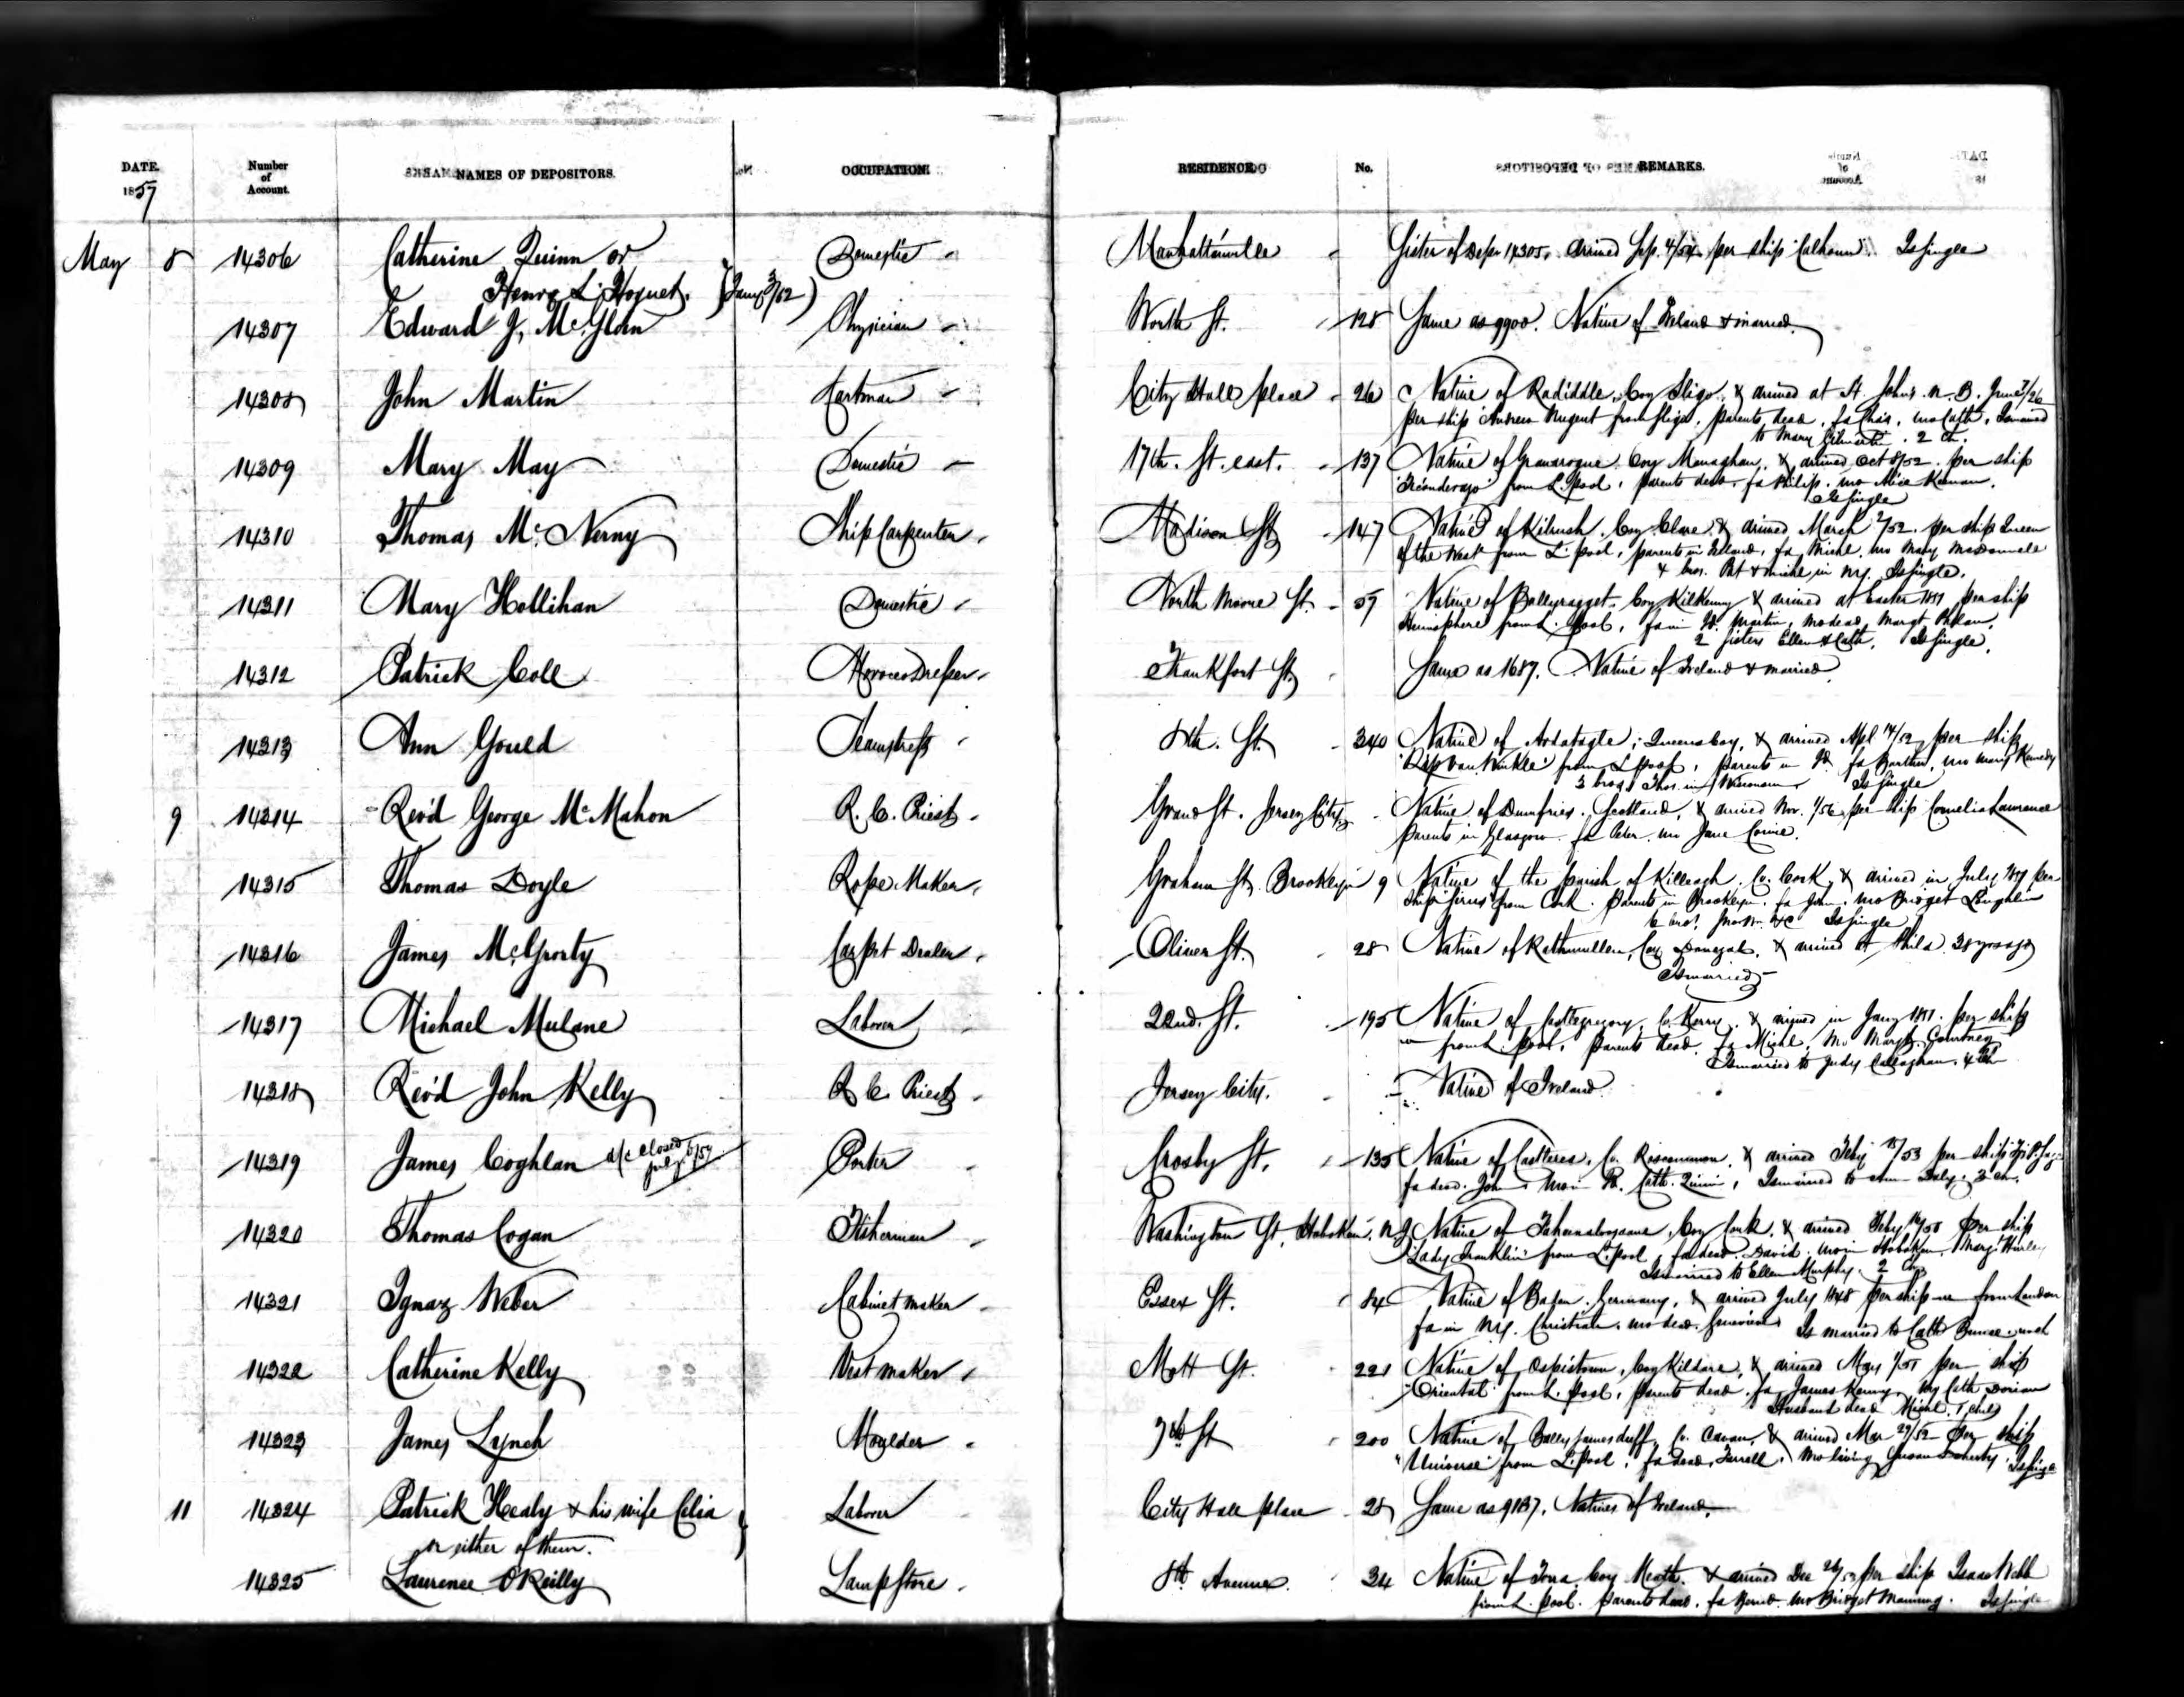 DATE. Number of Account. NAMES OF DEPOSITORS. OCCUPATION. RESIDENCE. No. REMARKS.
1857
May 8 14306 Catherine Quinn or Domestic Manhattanville Sister of Depr 14305. arrived Sep. 4/54 per ship Calhoun. Is single
Henry L. Hoguet. (Jany 3/62)
14307 Edward J. McGloin Physician Worth St. 128 Same as 9900. Native of Ireland & married.
14308 John Martin Cartman City Hall place 26 Native of Coy Sligo, & arrived at St. John's N.B. June 7/26
per ship Andrew Nugent from Sligo, parents dead, fa Chas, mo Cath, Is married
to Mary 2 ch.
14309 Mary May Domestic 17th. St. east. 137 Native of Coy Monaghan, & arrived Oct 8/52. per ship
Ticonderoga from L. pool, parents dead, fa Philip. mo Alice Kernan.
Is single
14310 Thomas Mc Nerny Ship Carpenter Madison St 147 Native of Kilrush, Coy Clare, & arrived March 2/52. per ship Queen
of the West from L. pool, parents in Ireland, fa Michl. mo Mary McDonnell
4 bros. Pat & Michl in NY. Is single.
14311 Mary Hollihan Domestic North Moore St. 57 Native of Ballyragget, Coy Kilkenny & arrived at Easter 1851 per ship
Hemisphere from L. pool, fa in Id. Martin, mo dead, Margt Phelan,
2 sisters Ellen & Cath. Is single.
14312 Patrick Coll Morocco Dresser Frankfort St. Same as 1687. Native of Ireland & married
14313 Ann Gould Seamstress 8th. St. 340 Native of Queens Coy, & arrived Apl 14/52 per ship
Rip Van Winkle from L. pool, parents in Id. fa mo Mary Kennedy
3 bros, Thos. in Is single
9 14314 Rev'd George Mc Mahon R. C. Priest Grand St. Jersey City Native of Dumfries, Scotland, & arrived Nov. 1/56 per ship Cornelia Lawrence
parents in Glasgow fa Peter mo Jane
14315 Thomas Doyle Rope Maker Graham St. Brooklyn 9 Native of the parish of Killeagh, Co. Cork, & arrived in July per
ship Sirius from Cork. Parents in Brooklyn, fa John. mo Bridget Loughlin
6 bros. &c Is single
14316 James McGrorty Carpet Dealer Oliver St. 28 Native of Rathmullen, Coy Donegal, & arrived at Phila 38 yrs ago
Is married
14317 Michael Mulane Laborer 22nd. St. 195 Native of Castlegregory, Co. Kerry. & arrived in Jany 1851. per ship
from L. pool, parents dead, fa Michl, mo Margt Courtney
Is married to Judy Callaghan. 4 ch
14318 Rev'd John Kelly R C. Priest Jersey City. Native of Ireland
14319 James Coghlan a/c closed July 6/59 Porter Crosby St. 135 Native of Castlerea, Co. Roscommon, & arrived Feby 18/53 per ship
fa dead. John. mo in Id. Cath. Quinn, Is married to Ann Daly. 3 ch.
14320 Thomas Cogan Fisherman Washington St, Hoboken, N.J. Native of Coy Cork, & arrived Feby per ship
Lady Franklin from L. pool, fa dead. David. mo in Hoboken. Margt Hurley
Is married to Ellen Murphy. 2 ch
14321 Ignaz Weber Cabinet Maker Essex St. 84 Native of Baden, Germany, & arrived July 1848 per ship from London
fa in NY. Christian. mo dead. Is married to Cath
14322 Catherine Kelly Vest Maker Mott St. 221 Native of Coy Kildare, & arrived May per ship
"Oriental" from L. pool, parents dead. fa James Kenny, mo Cath
Husband dead Michl. 1 child
14323 James Lynch Moulder 7th St 200 Native of Ballyjamesduff, Co. Cavan, & arrived Mar 29/52 per ship
"Universe" from L. pool, fa dead, Farrell, mo living Susan Is single
11 14324 Patrick Healy & his wife Celia Laborer City Hall place 28 Same as 9137. Natives of Ireland.
or either of them.
14325 Laurence O'Reilly Lamp Store 8th Avenue. 34 Native of Coy Meath. & arrived Dec per ship Isaac Webb
from L. pool. parents dead. fa mo Bridget Manning. Is single